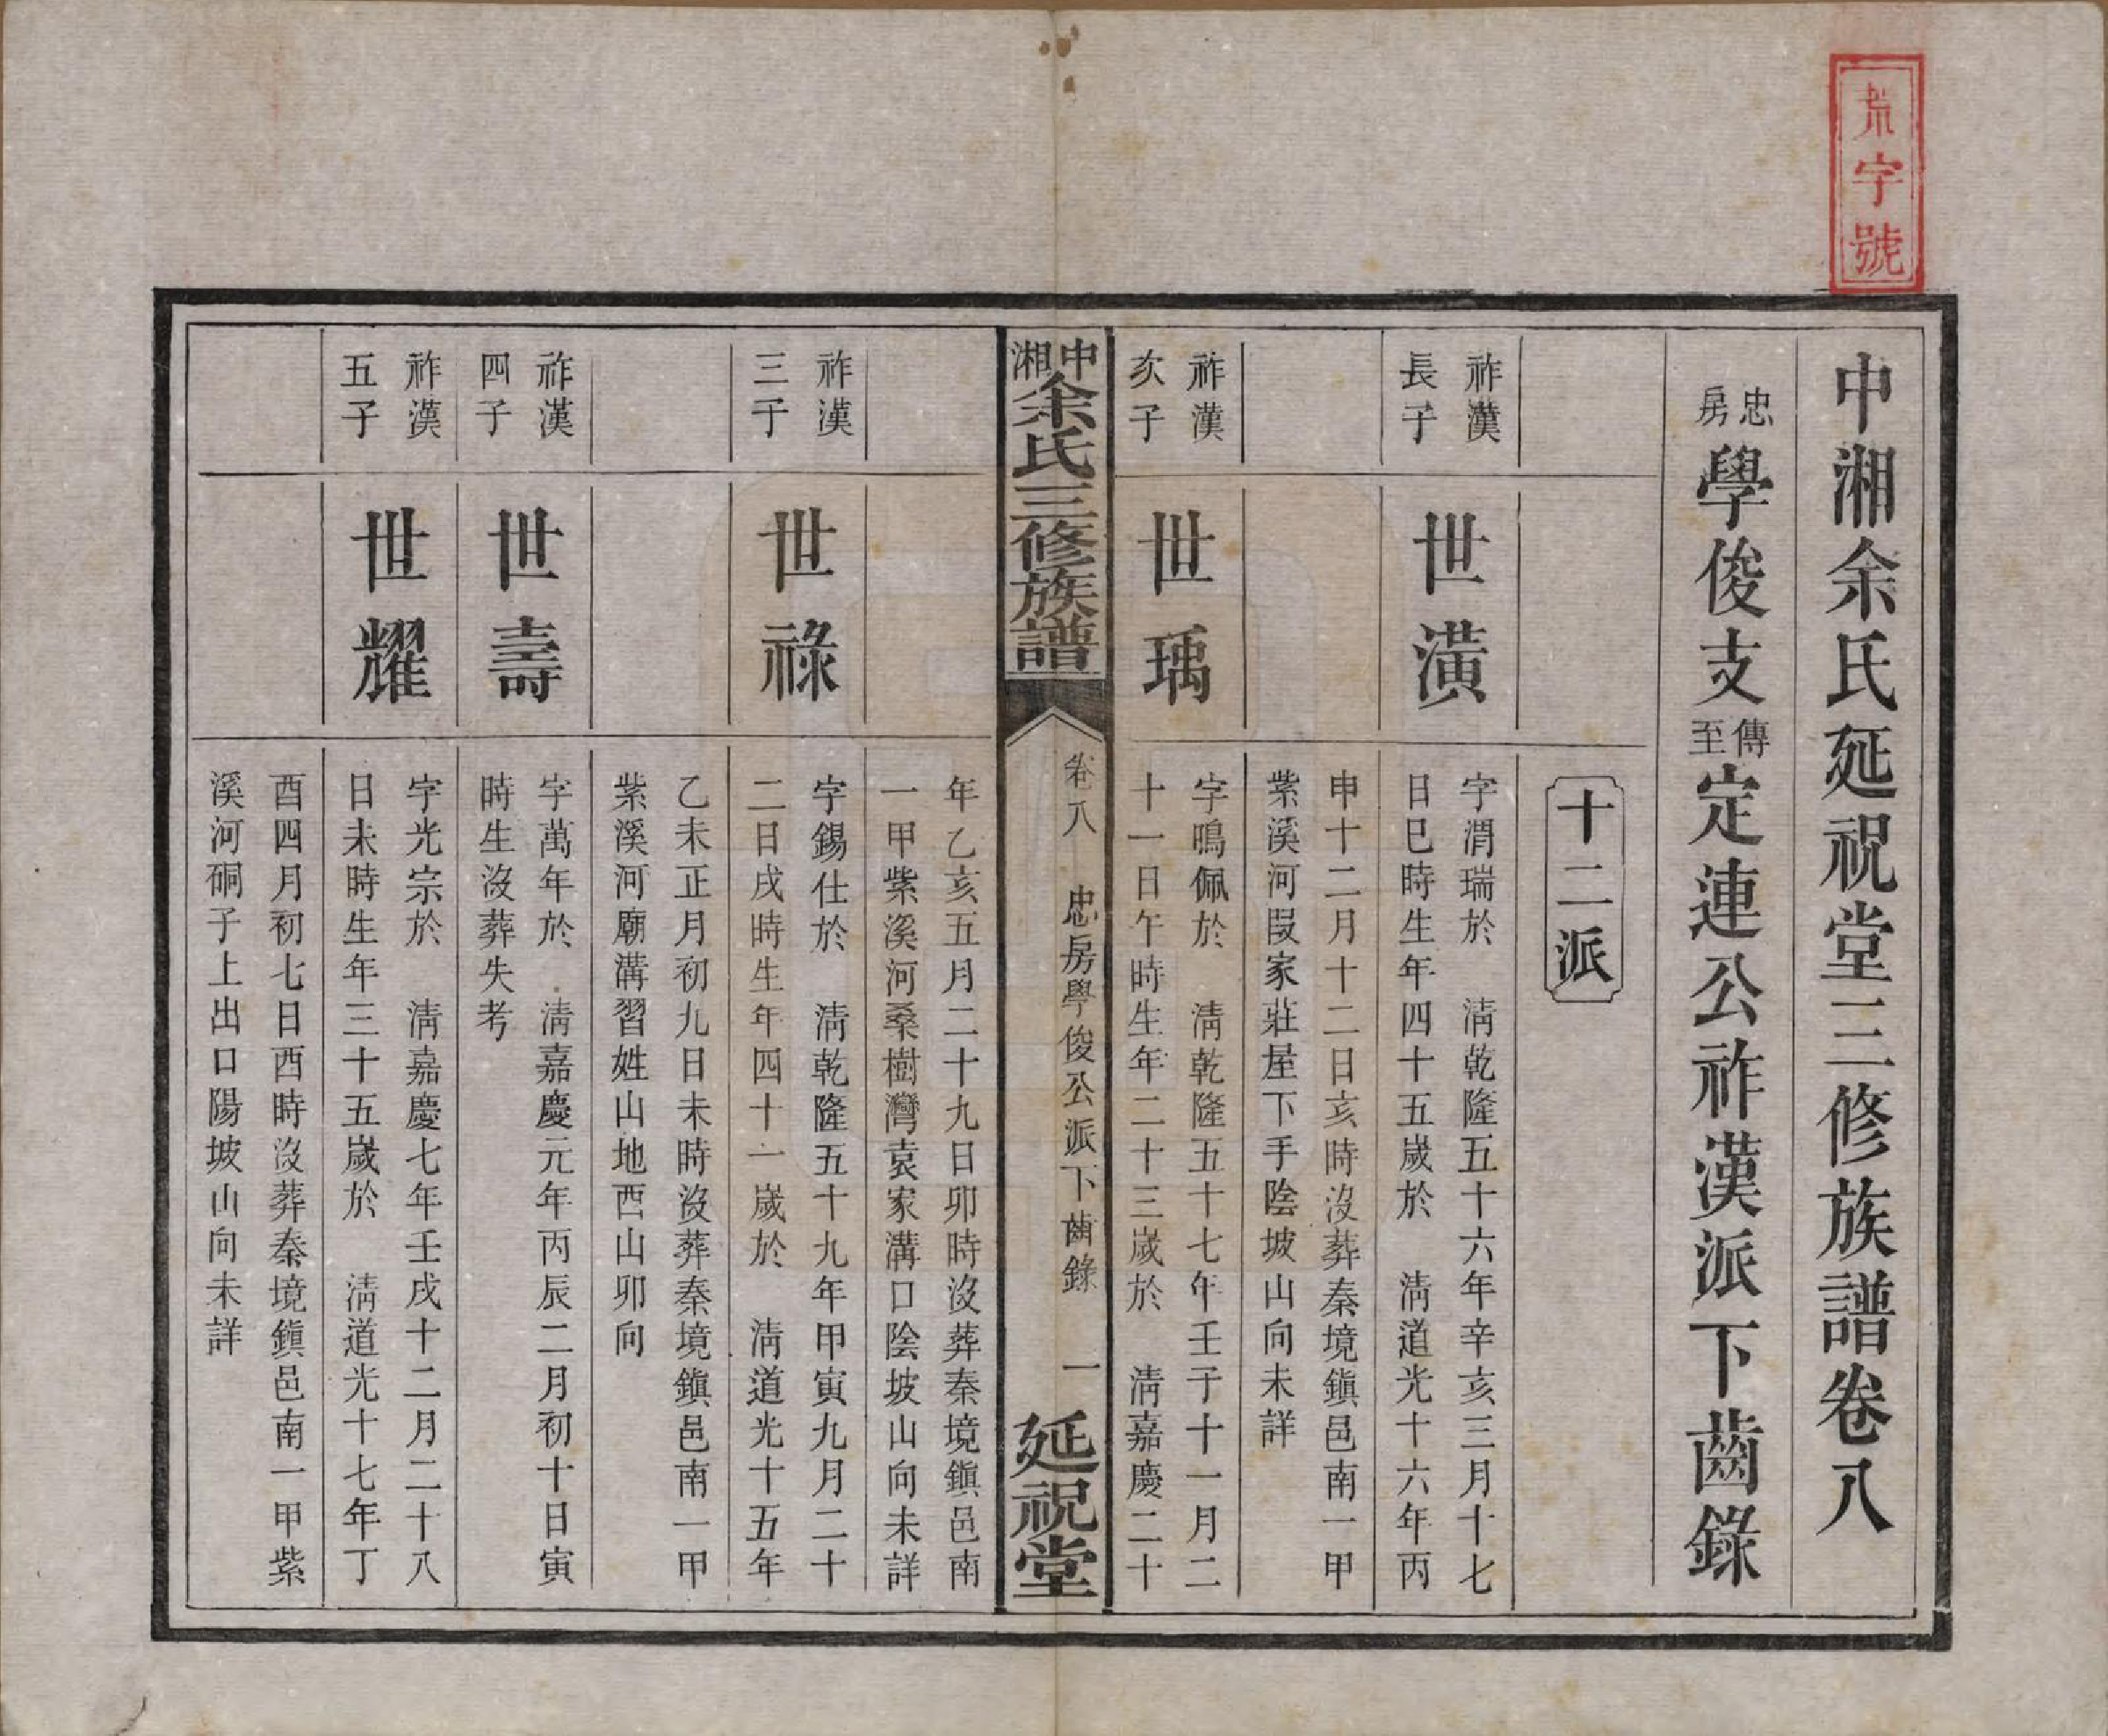 荒字號
中湘余氏延祝堂三修族譜卷八
忠房學俊支傳至定連公祚漢派下齒錄
十二派
祚漢
長子
世潢
字渭瑞於 清乾隆五十六年辛亥三月十七
日巳時生年四十五歲於 清道光十六年丙
申十二月十二日亥時沒葬秦境鎮邑南一甲
紫溪河段家莊屋下手陰坡山向未詳
祚漢
次子
世瑀
字鳴佩於 清乾隆五十七年壬子十一月二
十一日午時生年二十三歲於 清嘉慶二十
中湘余氏三修族譜
卷八 忠房學俊公派下齒錄 一
延祝堂
年乙亥五月二十九日卯時沒葬秦境鎮邑南
一甲紫溪河桑樹灣袁家溝口陰坡山向未詳
祚漢
三子
世祿
字錫仕於 清乾隆五十九年甲寅九月二十
二日戌時生年四十一歲於 清道光十五年
乙未正月初九日未時沒葬秦境鎮邑南一甲
紫溪河廟溝習姓山地酉山卯向
祚漢
四子
世壽
字萬年於 清嘉慶元年丙辰二月初十日寅
時生沒葬失考
祚漢
五子
世耀
字光宗於 清嘉慶七年壬戌十二月二十八
日未時生年三十五歲於 清道光十七年丁
酉四月初七日酉時沒葬秦境鎮邑南一甲紫
溪河硐子上出口陽坡山向未詳